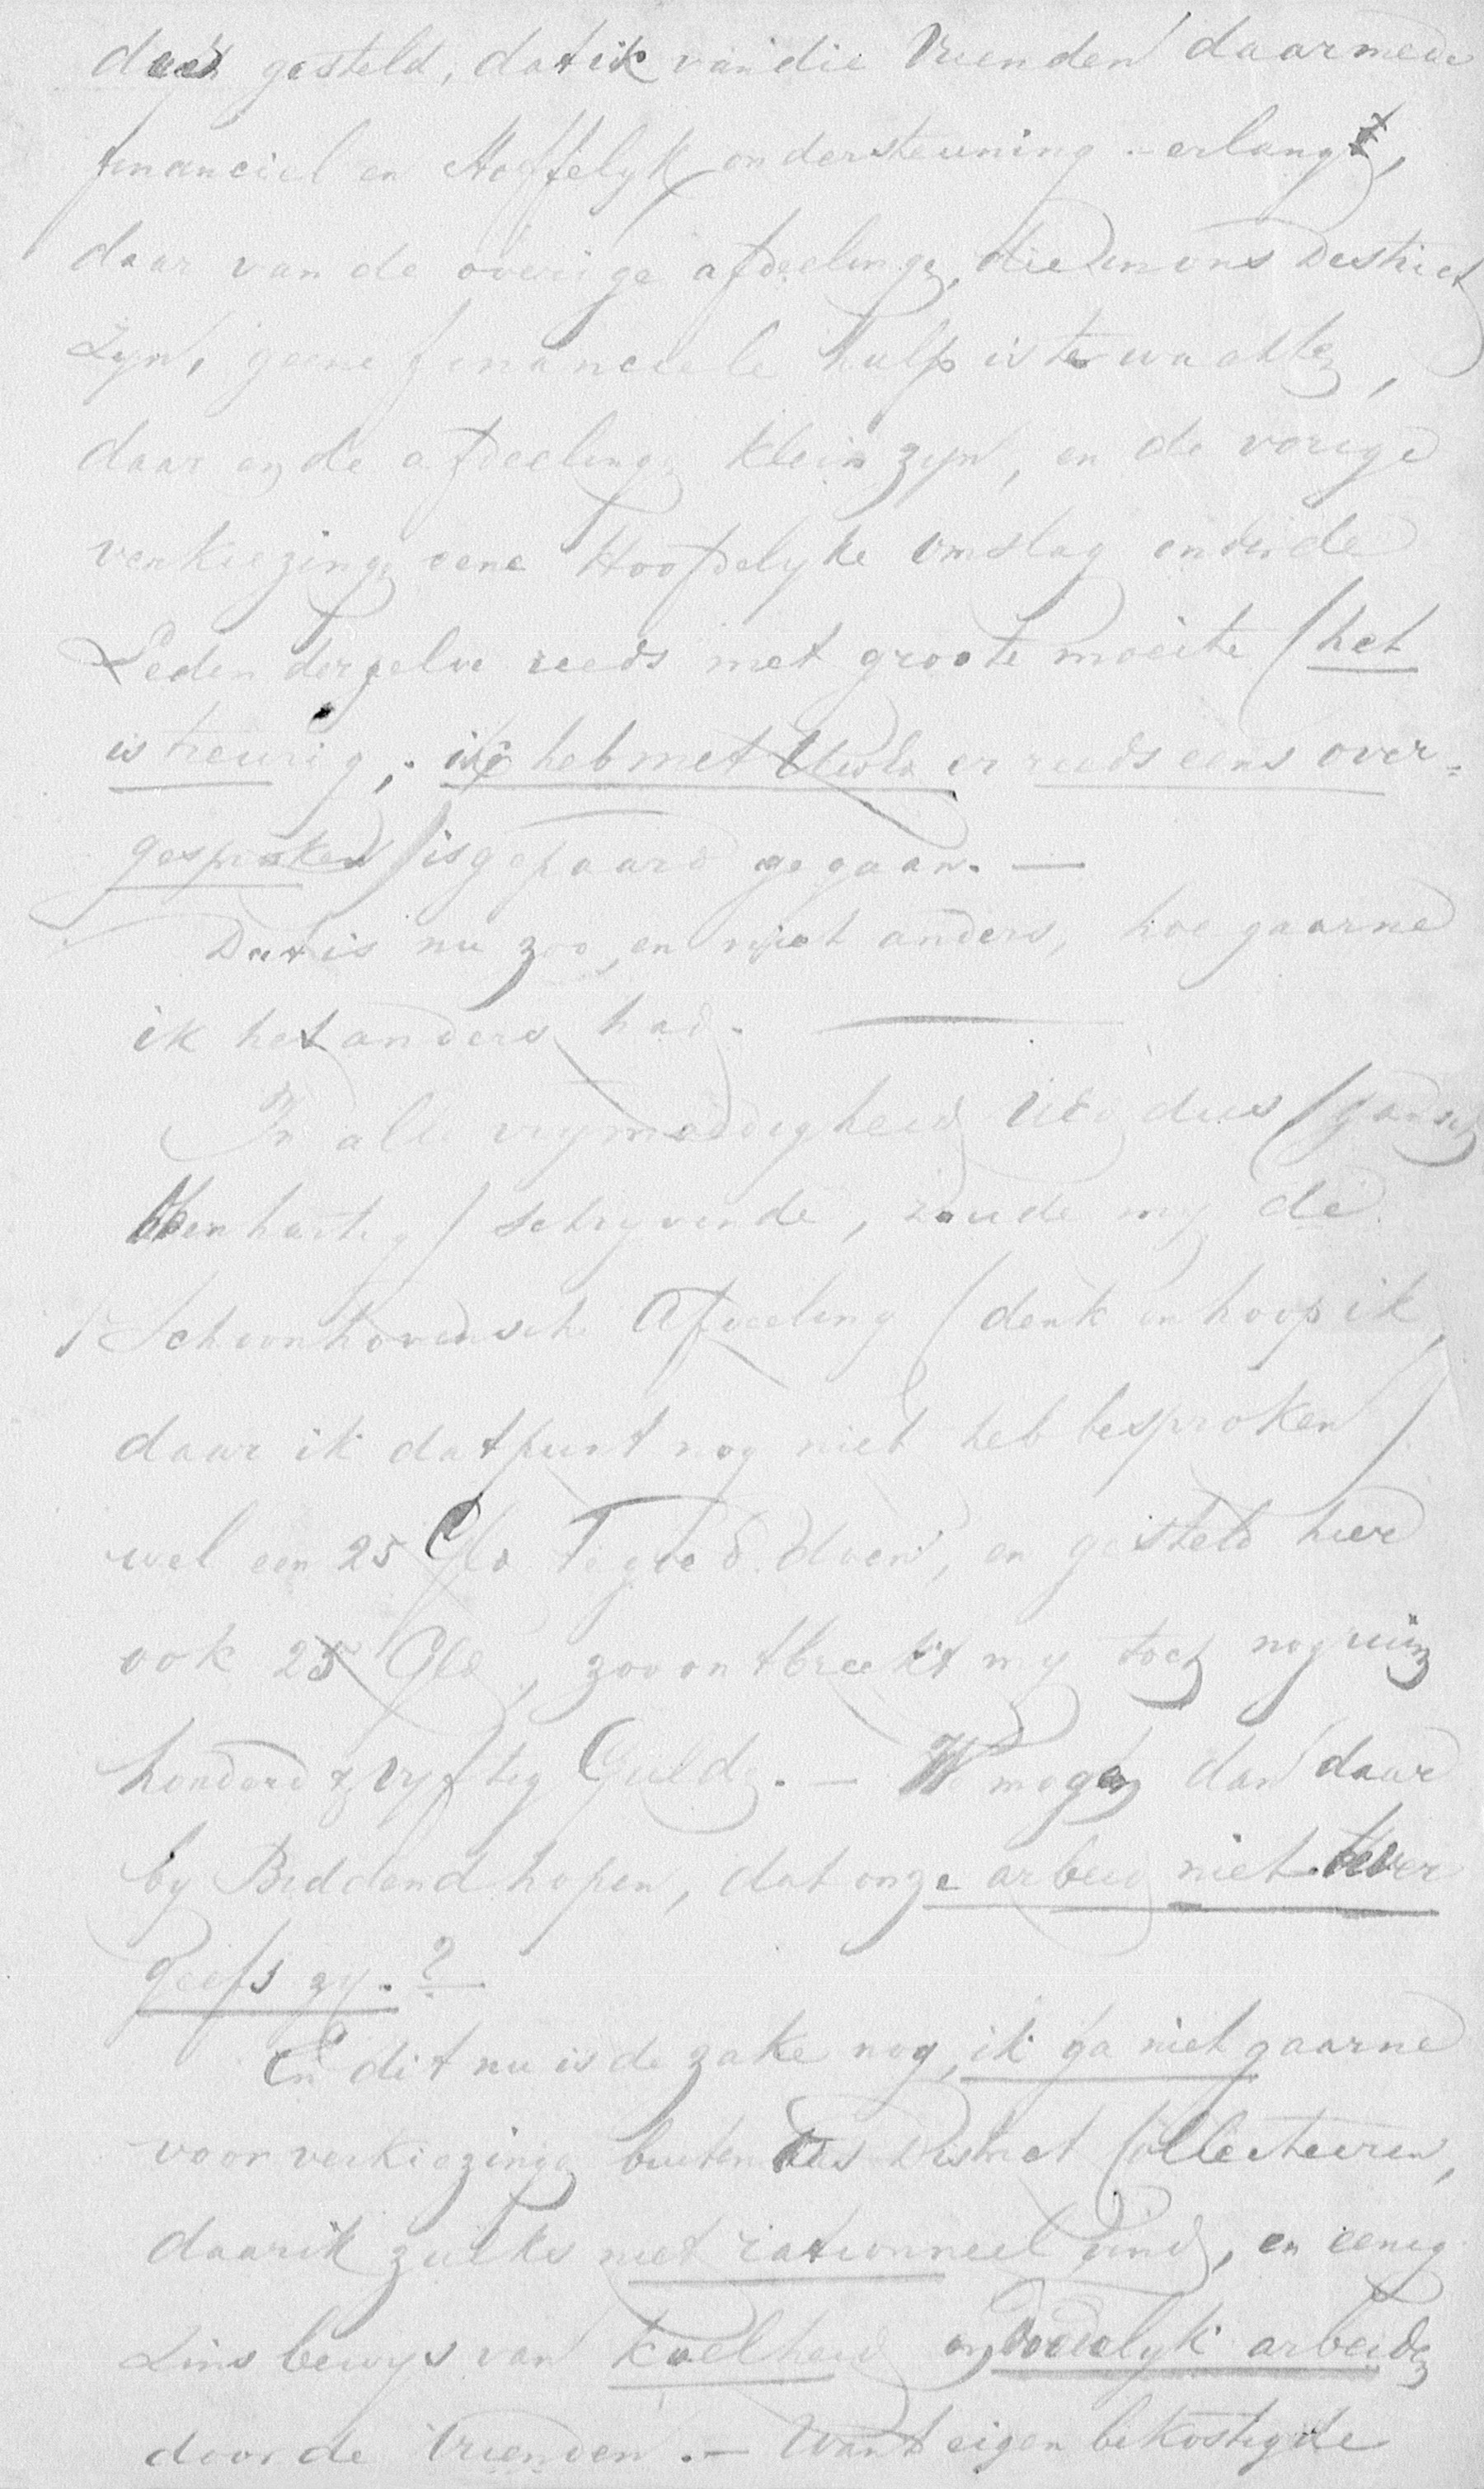 gesteld, dat ik van die Vrienden daarmede
financieel en Hoffelyk ondersteuning erlangt,
daar van de overige afdeelinge, die in ons District
Zyn, geene financieele hulp is te wachte,
daar en de afdeelinge klein zyn, en de vorige
verkiezinge eene Hoofdelyke omslag onder de
Leden derzelve reeds met groote moeite (het
is treurig, ik heb met UwEd er reeds eens over=
gesproken) is gepaard gegaan. —
Dat is nu zoo, en niet anders, hoe gaarne
ik het anders had. —
In alle vrymoedigheid UEd dus (gansch
openhartig) schryvende, zoude my de
Schoonhovensche Afdeeling (denk en hoop ik,
daar ik dat punt nog niet heb besproken)
wel een 25 Gld Tegoed doen, en gesteld hier
ook 25 Gld, zoo ontbreekt my toch nog ruim
honderd & vyftig Guld. — We mogen dan daar
by Biddend hopen, dat onze arbeid niet te ver
geefs zy. ?
En dit nu is de zake nog, ik ga niet gaarne
voor verkiezinge buiten het District Collecteeren,
daar ik zulks niet rationneel vind, en eenig
Zins bewys van koelheid en dodelyk arbeiden
door de Vrienden. — Want eigen bekostigde